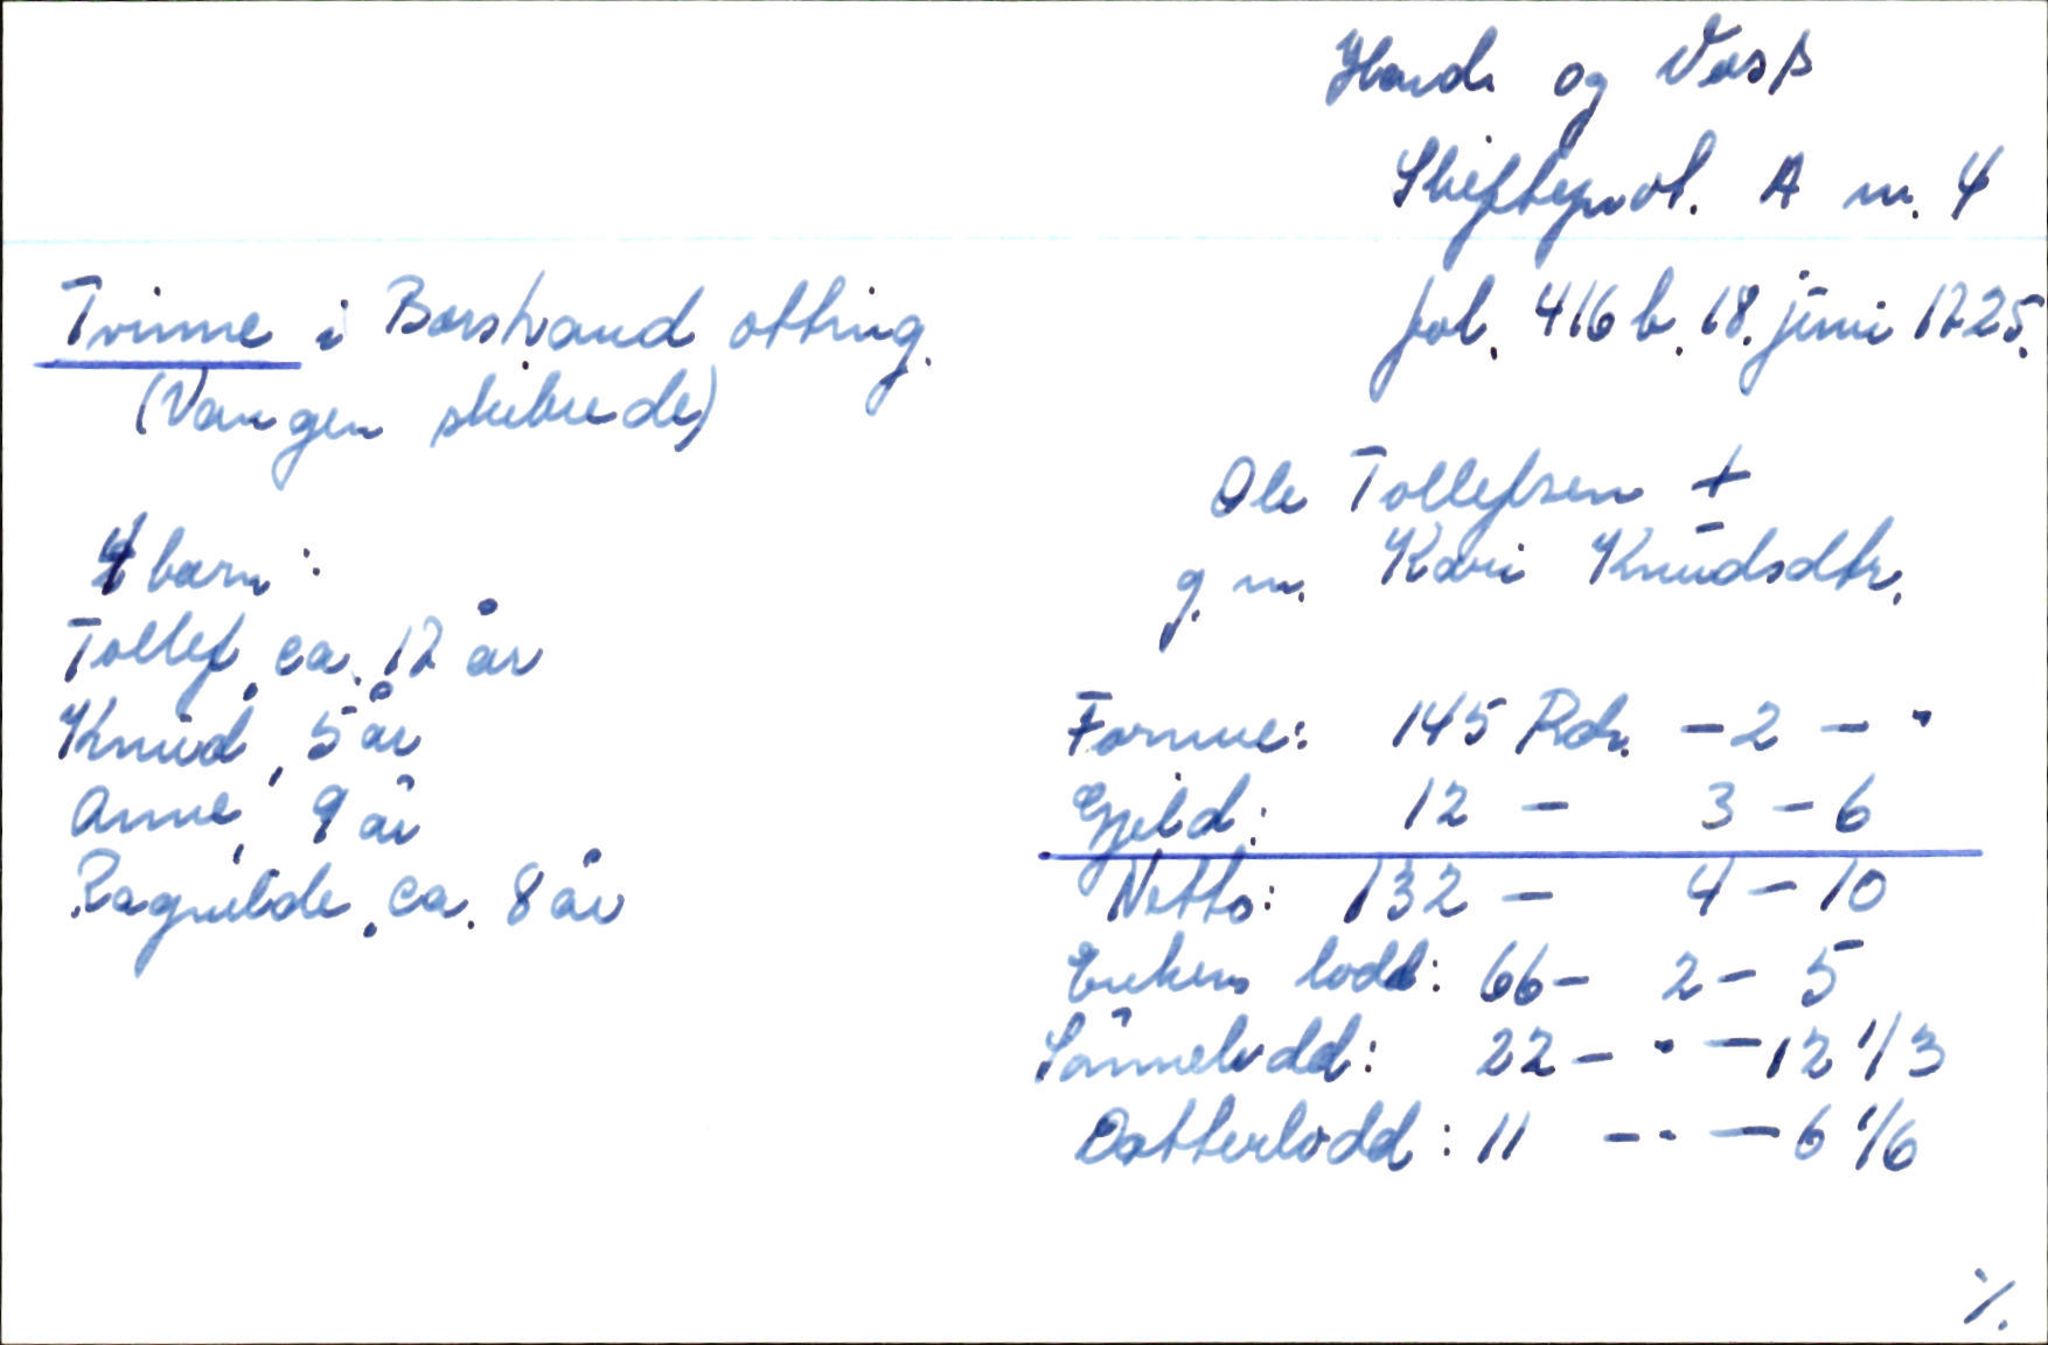 Hard. og Voss
Skifteprot. A nr. 4
fol. 416 b. 18. juni 1725.
Tvinne i Borstrand ottring.
(Vangen skibrede)
Ole Tollefsen +
g. m. Kari Knudsdtr.
4 barn:
Tollef, ca. 12 år
Knud, 5 år
Anne, 9 år
Ragnilde, ca. 8 år
Formue: 145 Rdr. - 2 - "
Gjeld: 12 - 3 - 6
Netto: 132 - 4 - 10
Enkens lodd: 66 - 2 - 5
Sønnelodd: 22 - " - 12 1/3
Datterlodd: 11 - " - 6 1/6
·/.